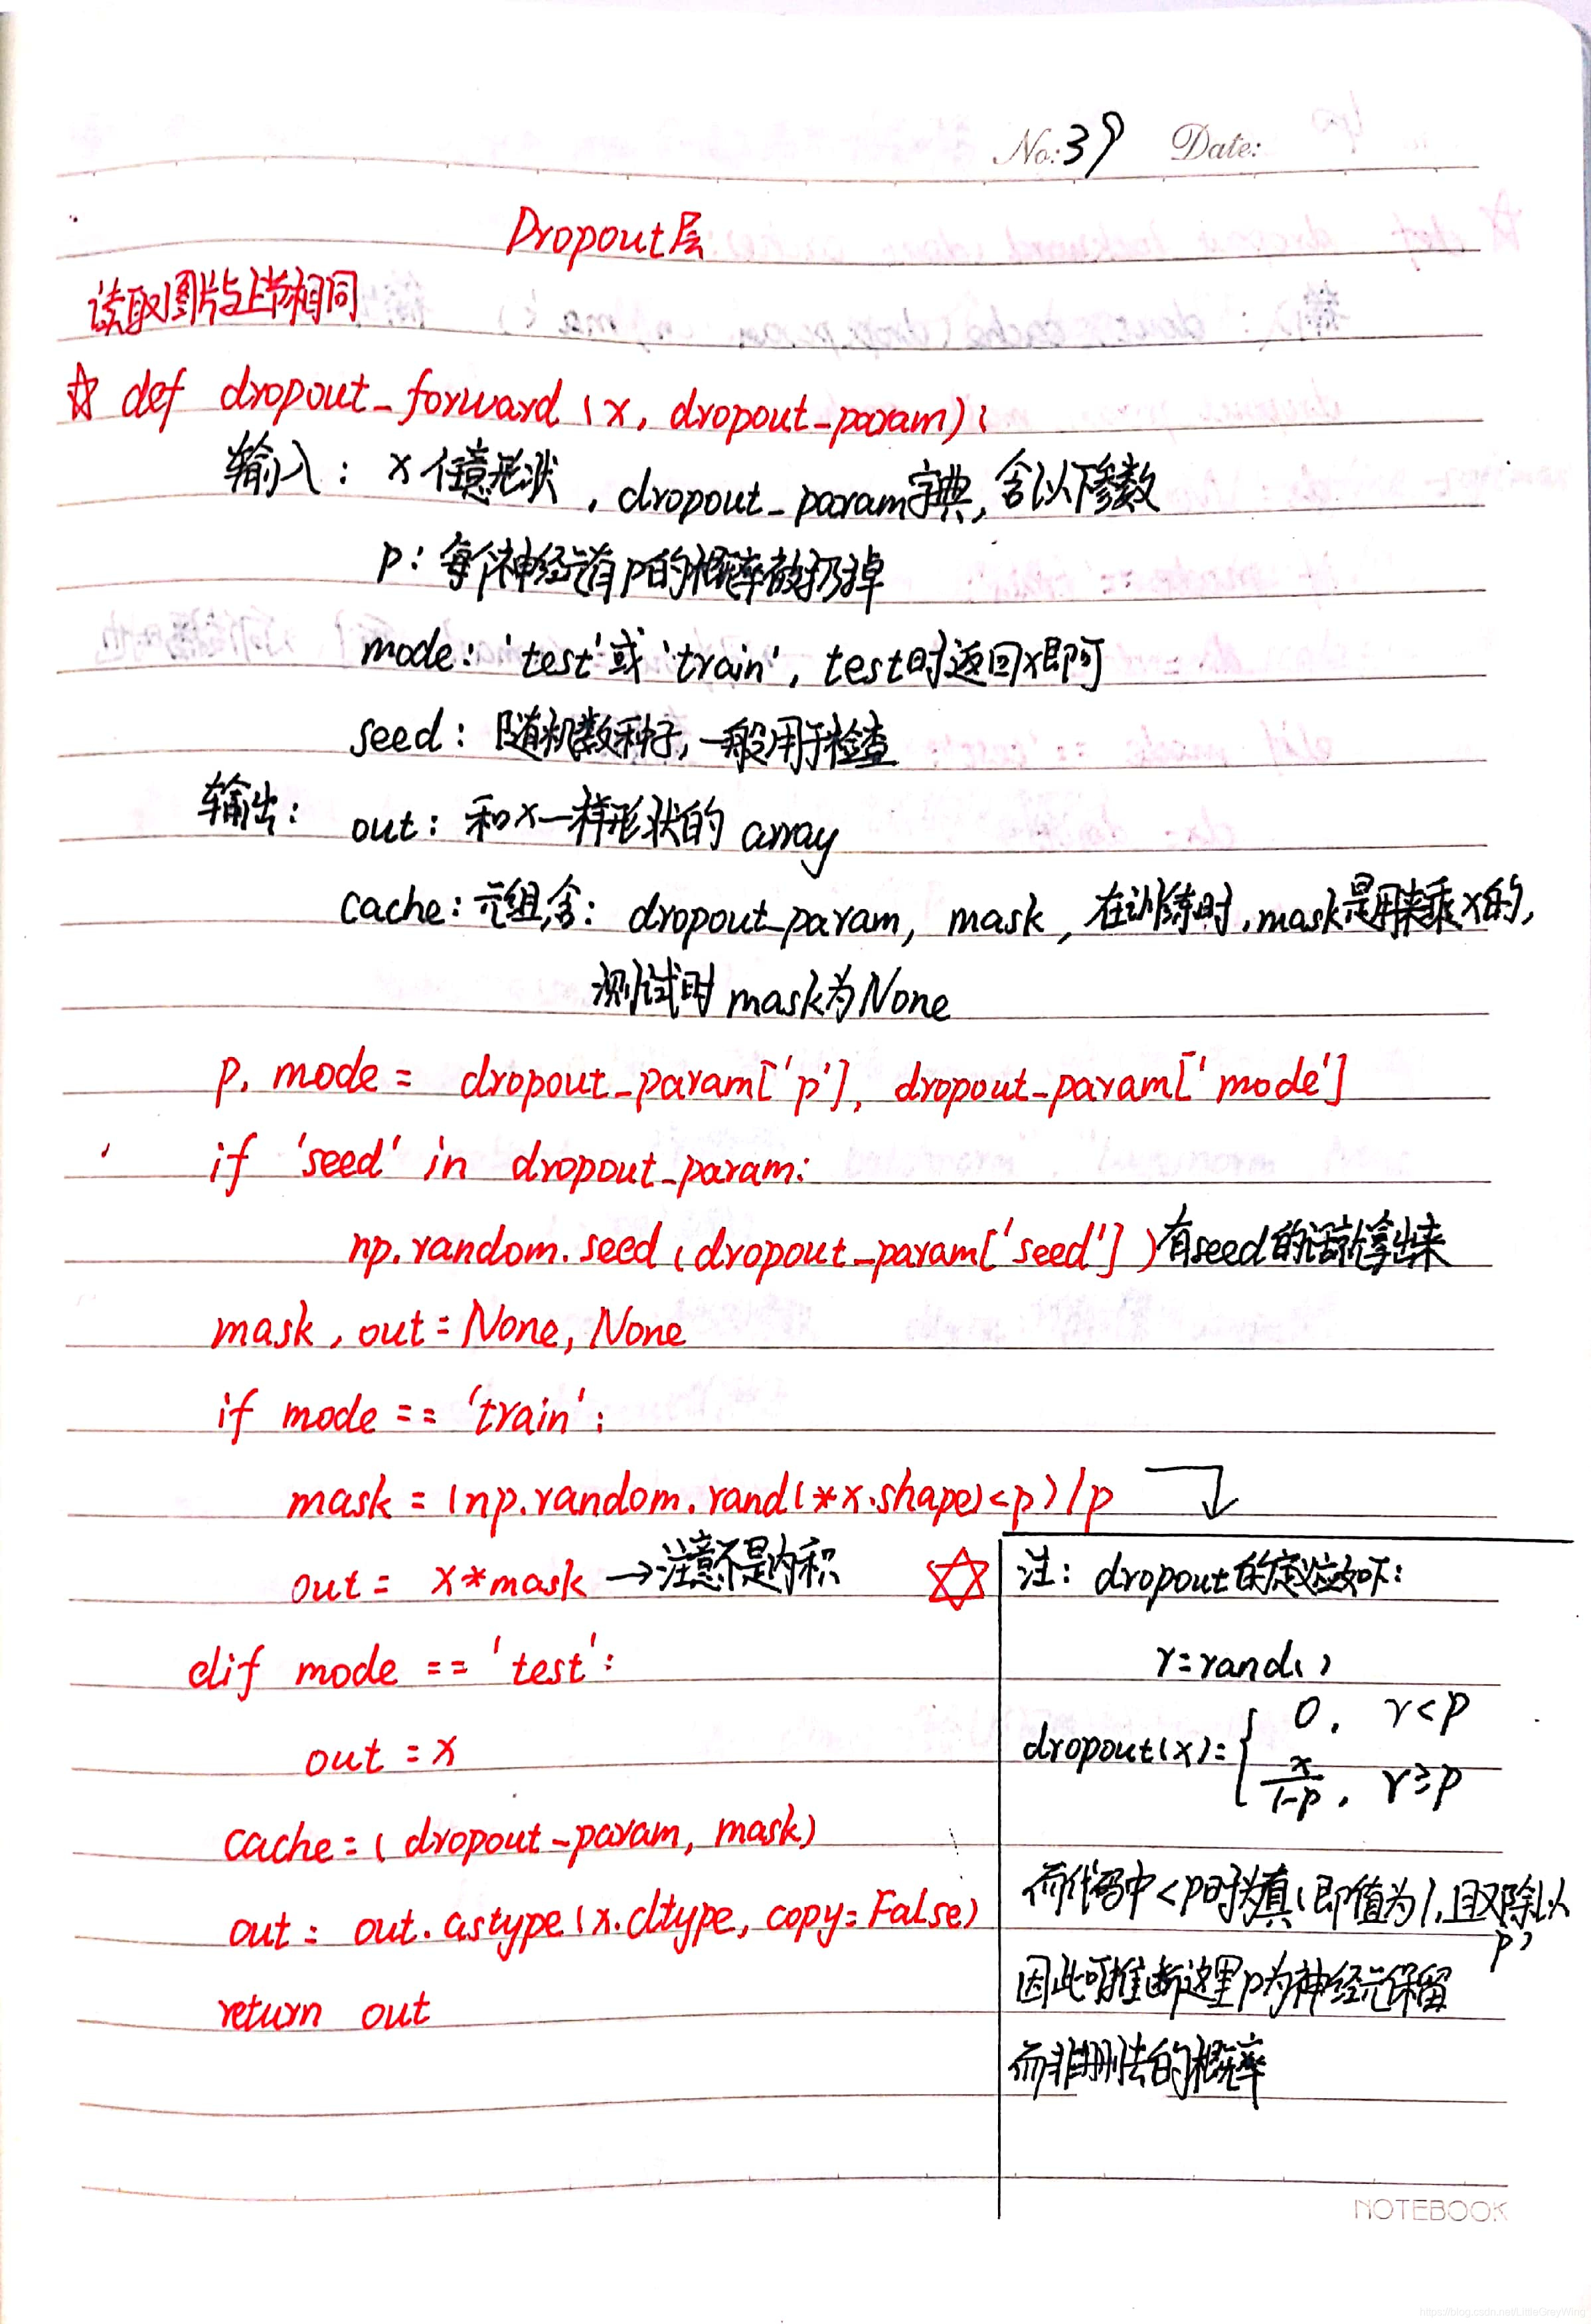 No: 39 Date:
Dropout层
读取图片与上节相同
☆ def dropout_forward (x, dropout_param):
输入: x任意形状, dropout_param字典,含以下参数
p: 每个神经元有p的概率被扔掉
mode: 'test'或'train', test时返回x即可
seed: 随机数种子,一般用于检查
输出: out: 和x一样形状的 array
cache: 元组,含: dropout_param, mask, 在训练时,mask是用来乘x的,
测试时mask为None
p, mode = dropout_param['p'], dropout_param['mode']
if 'seed' in dropout_param:
np.random.seed (dropout_param['seed']) 有seed的话就拿出来
mask, out = None, None
if mode == 'train':
mask = (np.random.rand(*x.shape)<p)/p
out = x*mask →注意不是内积
elif mode == 'test':
out = x
cache = (dropout_param, mask)
out = out.astype(x.dtype, copy=False)
return out
注: dropout的定义应如下:
r=rand()
dropout(x)={ 0, r<p
x/1-p, r≥p
而代码中<p时为真(即值为1,且又除以p,
因此可推断这里p为神经元保留
而非删去的概率
NOTEBOOK
https://blog.csdn.net/LittleGreyWing